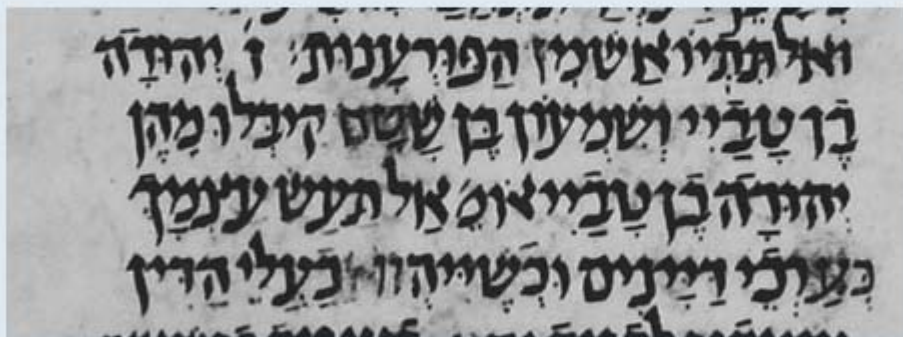 וְאַל תִּתְיוֹאַשׁ מִן הַפּוּרְעָנוּת׃ ז׳ יְהוּדָה
בֶּן טָבַיִי וְשִׁמְעוֹן בֶּן שָׁטָח קִיבְּלוּ מֵהֶן
יְהוּדָה בֶּן טָבַיִי אומ׳ אַל תַּעַשׂ עַצְמָךְ
כְּעָרְכֵי דַיָּינִים וּכְשֶׁיִּיהְוּ בַעֲלֵי הַדִּין